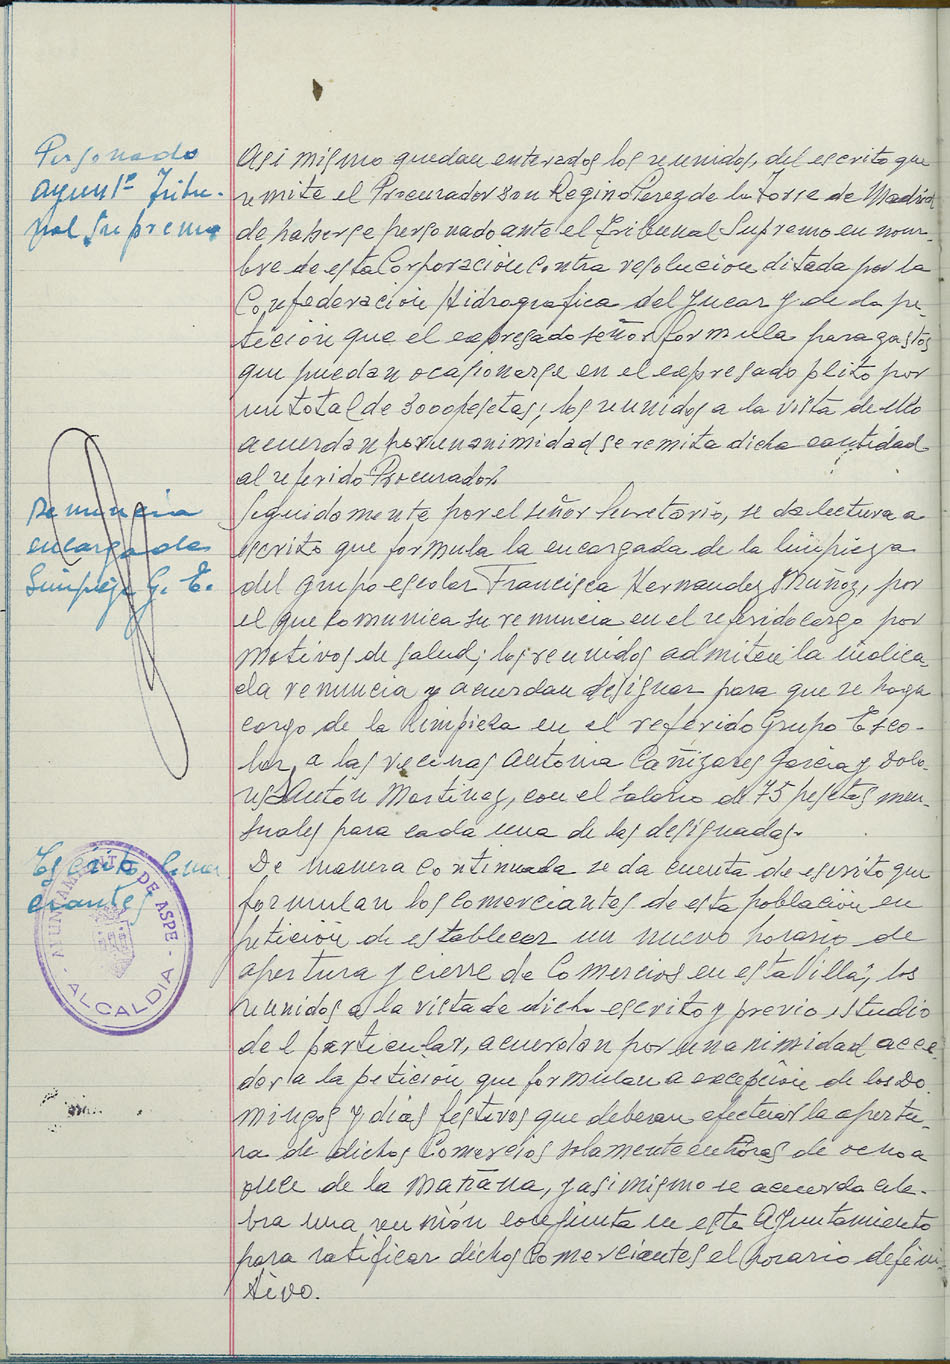 Personado
Ayunt° Tribu-
nal Supremo
Asi mismo quedan enterados los reunidos, del escrito que
remite el Procurador Don Regino Perez de la Torre de Madrid
de haberse personado ante el Tribunal Supremo en nom-
bre de esta Corporación contra resolución ditada por la
Confederación Hidrografica del Jucar y de la pe-
tición que el expresado señor formula para gastos
que puedan ocasionarse en el expresado plito por
un total de 3000 pesetas; los reunidos a la vista de ello
acuerdan por unanimidad se remita dicha cantidad
al referido Procurador.
Renuncia
encargada
Limpieza G. E.
Seguidamente por el señor Secretario, se da lectura a
escrito que formula la encargada de la limpieza
del grupo escolar Francisca Hernandez Muñoz, por
el que comunica su renuncia en el referido cargo por
motivos de salud; los reunidos admiten la indica-
da renuncia y acuerdan designar para que se haga
cargo de la limpieza en el referido Grupo Esco-
lar, a las vecinas Antonia Cañizares Garcia y Dolo-
res Anton Martinez, con el salario de 75 pesetas men-
suales para cada una de las designadas.
Escrito Comer
ciantes
AYUNTAMIENTO DE ASPE
- ALCALDIA -
De manera continuada se da cuenta de escrito que
formulan los comerciantes de esta población en
petición de establecer un nuevo horario de
apertura y cierre de Comercios en esta Villa; los
reunidos a la vista de dicho escrito y previo estudio
del particular, acuerdan por unanimidad acce-
der a la petición que formulan a excepción de los Do
mingos y dias festivos que deberan efectuar la apertu-
ra de dichos Comercios solamente en horas de ocho a
once de la mañana, y asi mismo se acuerda cele-
bra una reunión conjunta en este Ayuntamiento
para ratificar dichos Comerciantes el horario defini-
tivo.